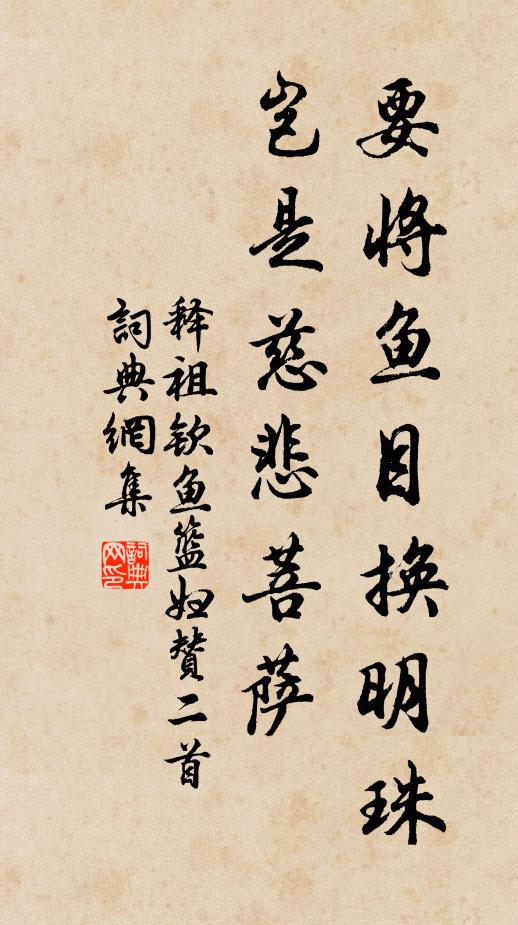 要将鱼目换明珠
岂是慈悲菩萨
释祖钦鱼篮妇赞二首
詞典網集
詞典网印